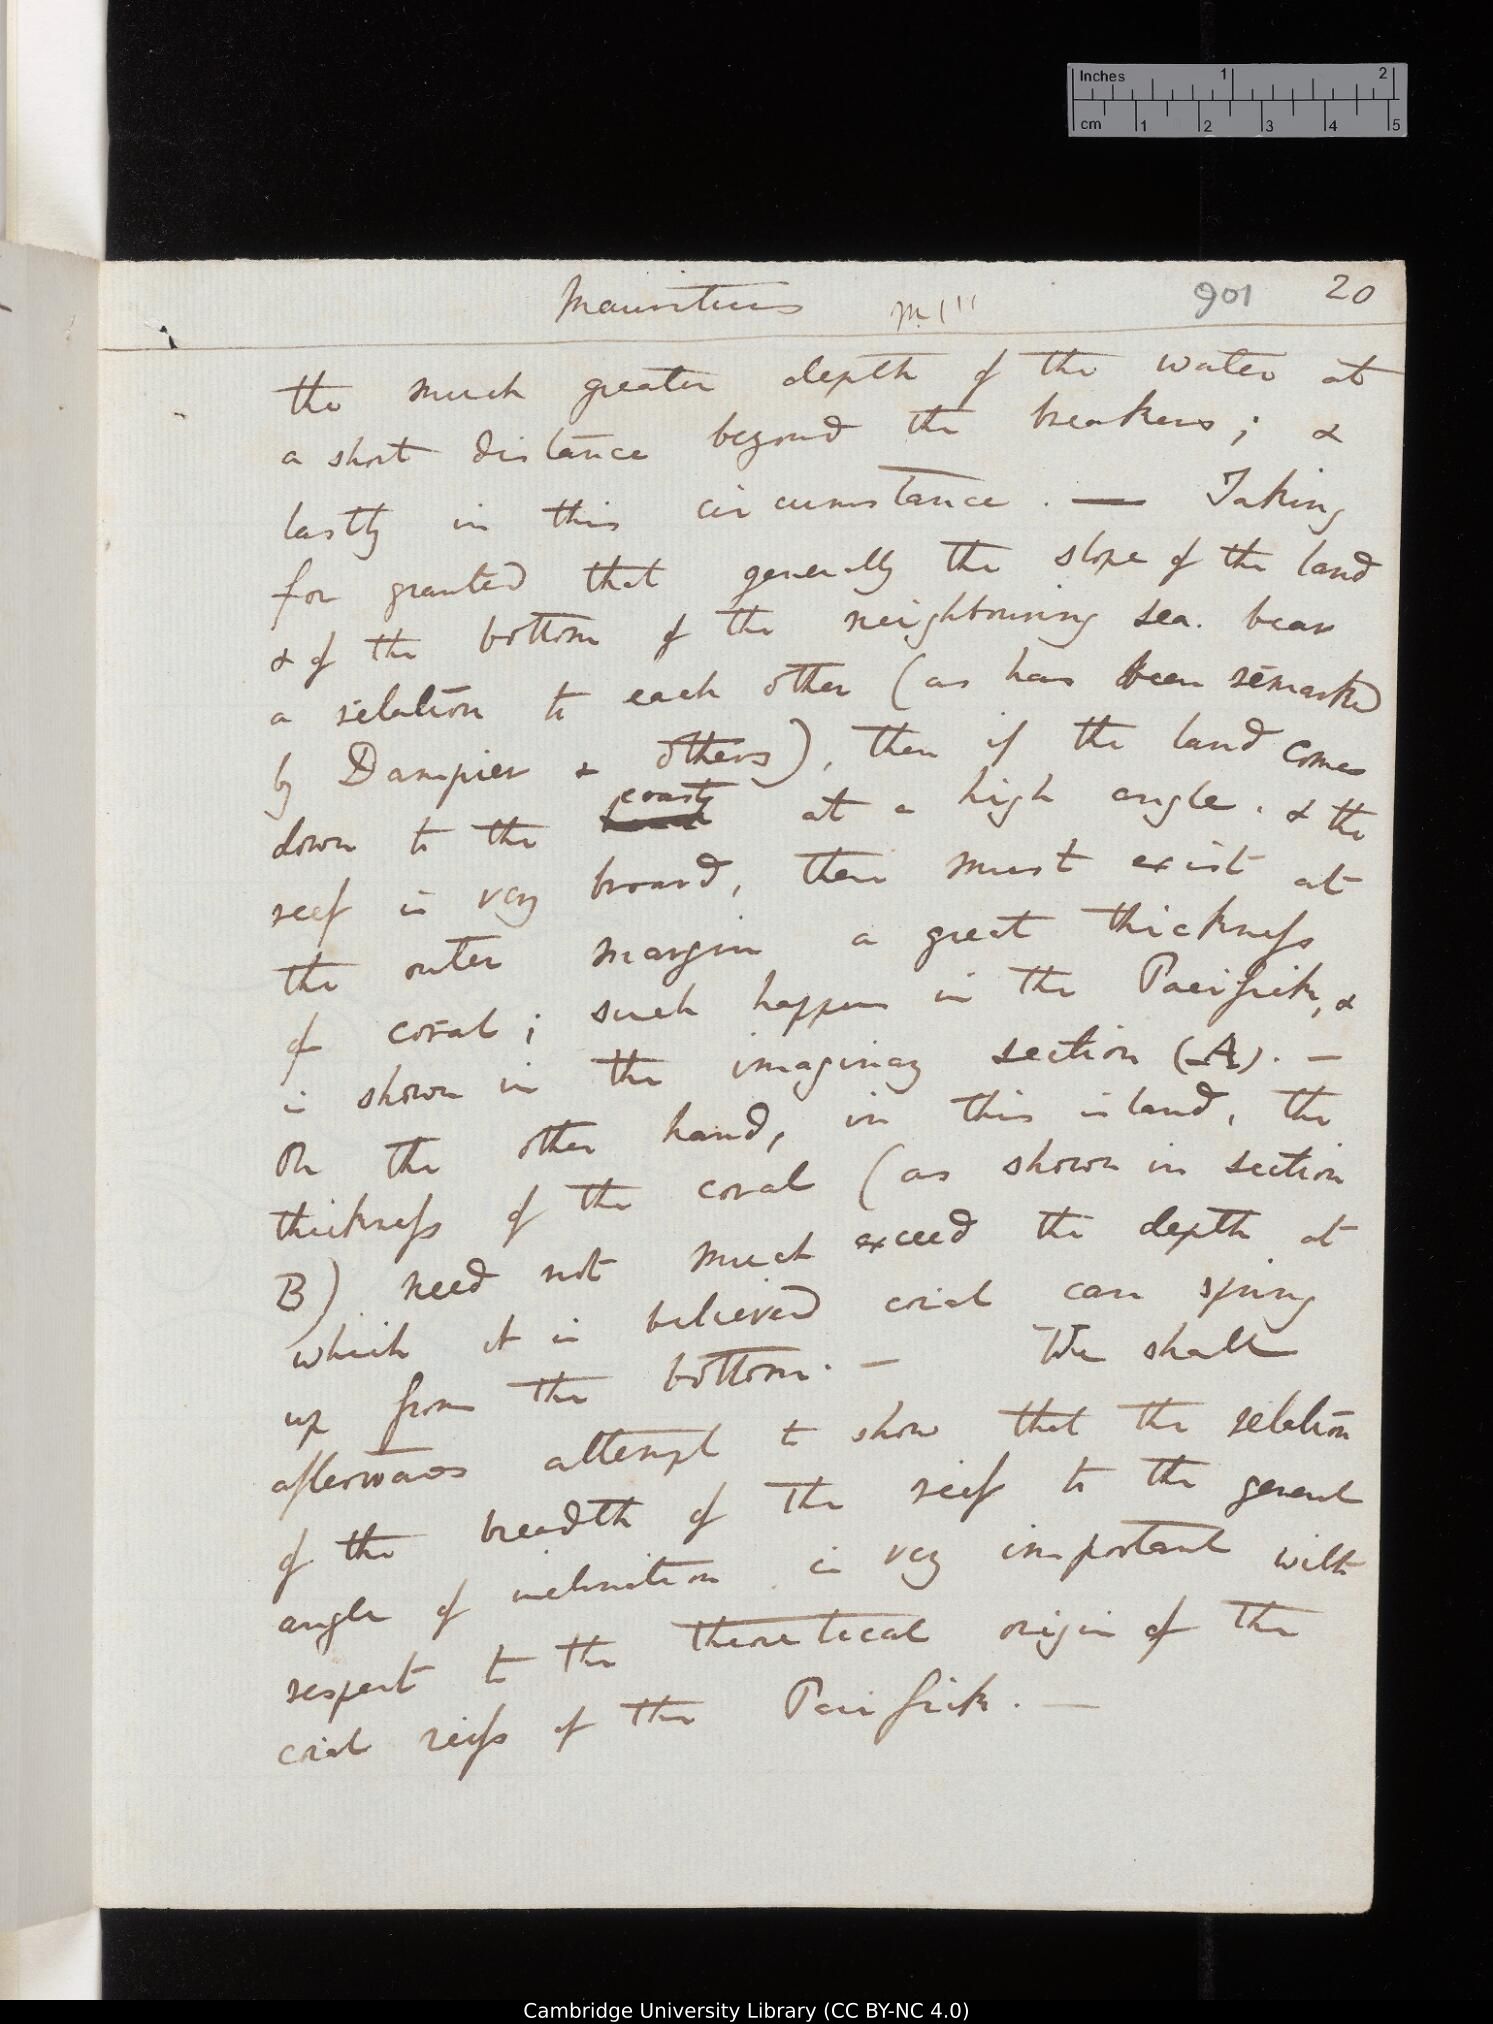 Inches 1 2
cm 1 2 3 4 5
Mauritius 901 20
the much greater depth of the water at
a short distance beyond the breakers; &
lastly in this circumstance. — Taking
for granted that generally the slope of the land
& of the bottom of the neighbouring sea. bear
a relation to each other (as has been remarked
by Dampier & others), then if the land comes
coast
down to the at a high angle. & the
reef is very broard, there must exist at
the outer margin a great thickness
of coral; such happens in the Pacifick, &
is shown in the imaginary section (A). —
On the other hand, in this island, the
thickness of the coral (as shown in section
B) need not much exceed the depth at
which it is believed coral can spring
up from the bottom. — We shall
afterwards attempt to show that the relation
of the breadth of the reef to the general
angle of inclination is very important with
respect to the theoretical origin of the
coral reefs of the Pacifick. —
Cambridge University Library (CC BY-NC 4.0)